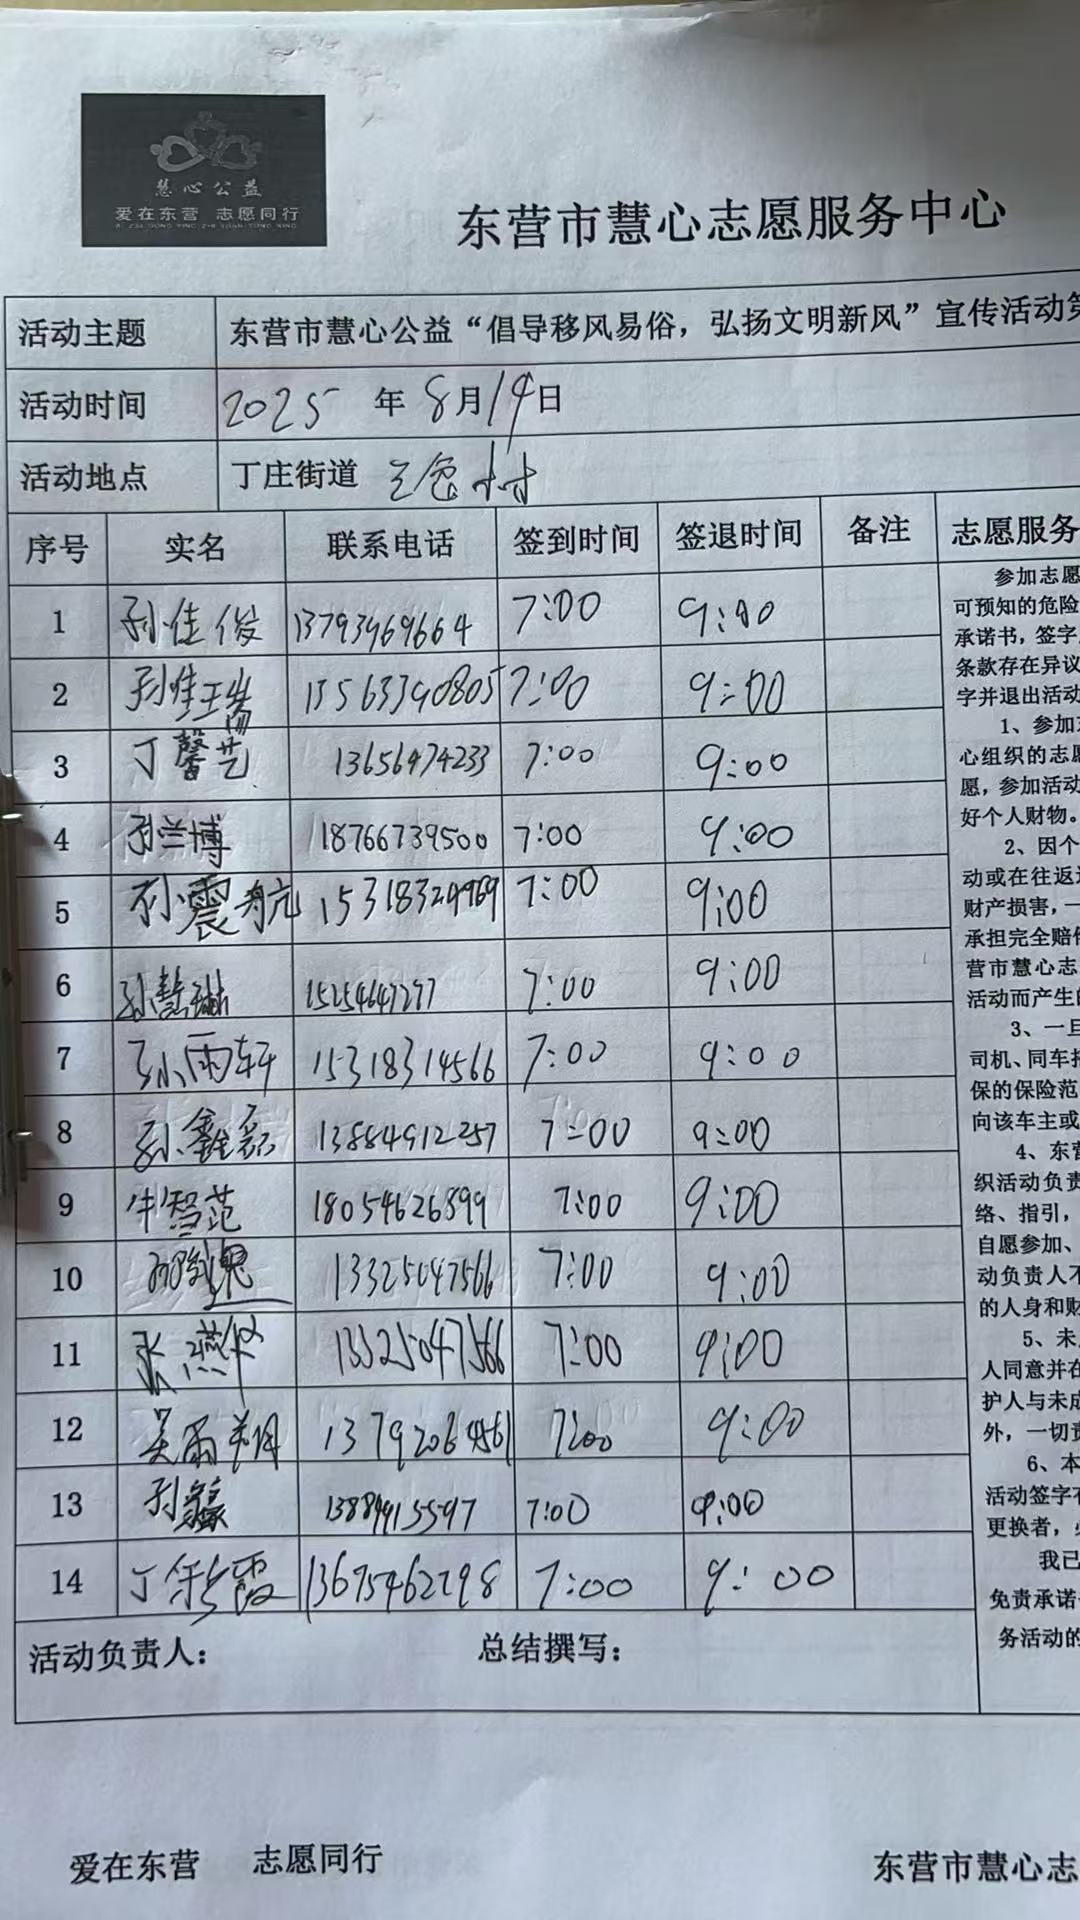 慧心公益
爱在东营 志愿同行
AI ZAI DONG YING ZHI YUAN TONG XING
东营市慧心志愿服务中心
活动主题 东营市慧心公益“倡导移风易俗，弘扬文明新风”宣传活动第
活动时间 2025 年 8月14日
活动地点 丁庄街道 村
序号 实名 联系电话 签到时间 签退时间 备注 志愿服务
1 孙佳俊 13793969664 7:00 9:00
2 孙佳 13563390805 7:00 9:00
3 丁馨艺 13656474233 7:00 9:00
4 孙兰博 18766739500 7:00 9:00
5 孙震航 7:00 9:00
6 孙慧琳 15254647277 7:00 9:00
7 孙雨轩 15318314566 7:00 9:00
8 孙鑫磊 13884912257 7:00 9:00
9 牛智范 18054626399 7:00 9:00
10 13325047566 7:00 9:00
11 张燕 13325047566 7:00 9:00
12 吴雨翔 13792064561 7:00 9:00
13 孙 7:00 9:00
14 丁 霞 13675462798 7:00 9:00
参加志愿
可预知的危险
承诺书，签字
条款存在异议
字并退出活动
1、参加
心组织的志愿
愿，参加活动
好个人财物。
2、因个
动或在往返
财产损害，一
承担完全赔偿
营市慧心志
活动而产生的
3、一旦
司机、同车
保的保险范
向该车主或
4、东营
织活动负责
络、指引，
自愿参加、
动负责人不
的人身和财
5、未
人同意并在
护人与未成
外，一切责
6、本
活动签字
更换者，
我已
免责承诺
务活动的
活动负责人： 总结撰写：
爱在东营 志愿同行 东营市慧心志